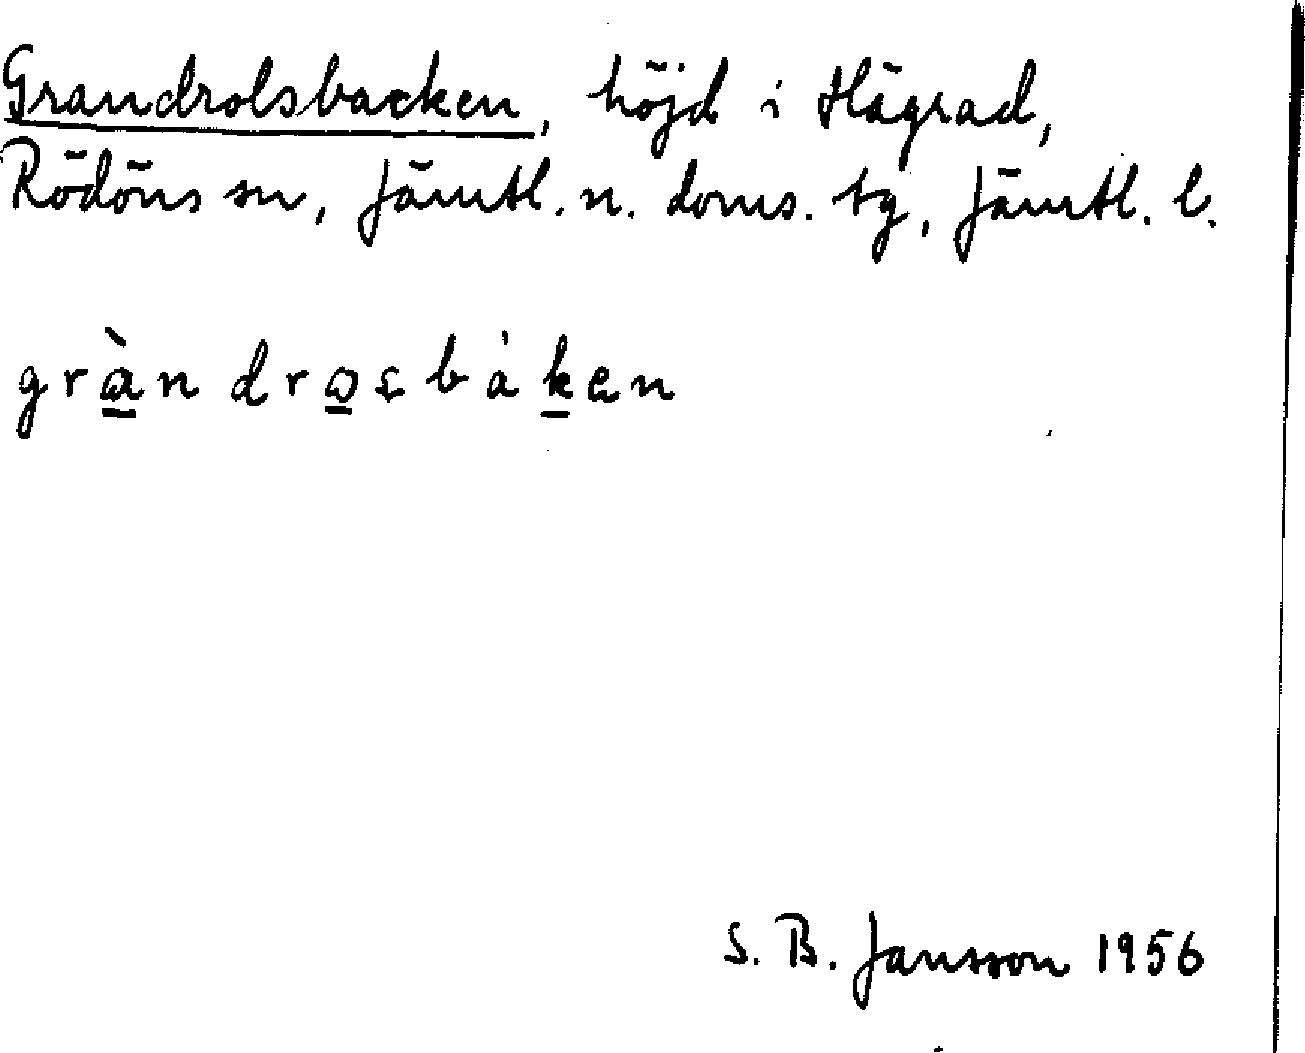 Grandrolsbacken, höjd i Hägrad,
Rödöns sn, Jämtl. n. doms. tg, Jämtl. l.
gràndrosbáken
S. B. Jansson 1956